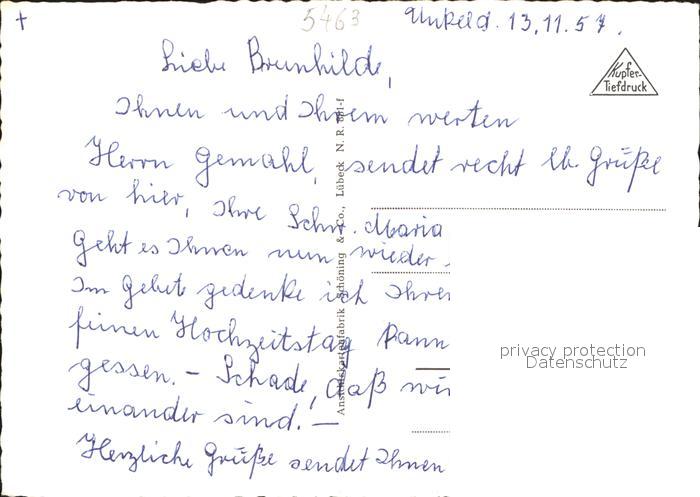 +
5463
Unkeld. 13.11.57.
Kupfer-
Tiefdruck
Liebe Brunhilde,
Ihnen und Ihrem werten
Herrn Gemahl, sendet recht lb. Grüße
von hier, Ihre Schw. Maria
Geht es Ihnen nun wieder
Im Gebete gedenke ich Ihrer
feinen Hochzeitstag kann
gessen. - Schade, daß wir
einander sind. -
Herzliche Grüße sendet Ihnen
Ansichtskartenfabrik Schöning & Co., Lübeck N. R. 881-f
privacy protection
Datenschutz